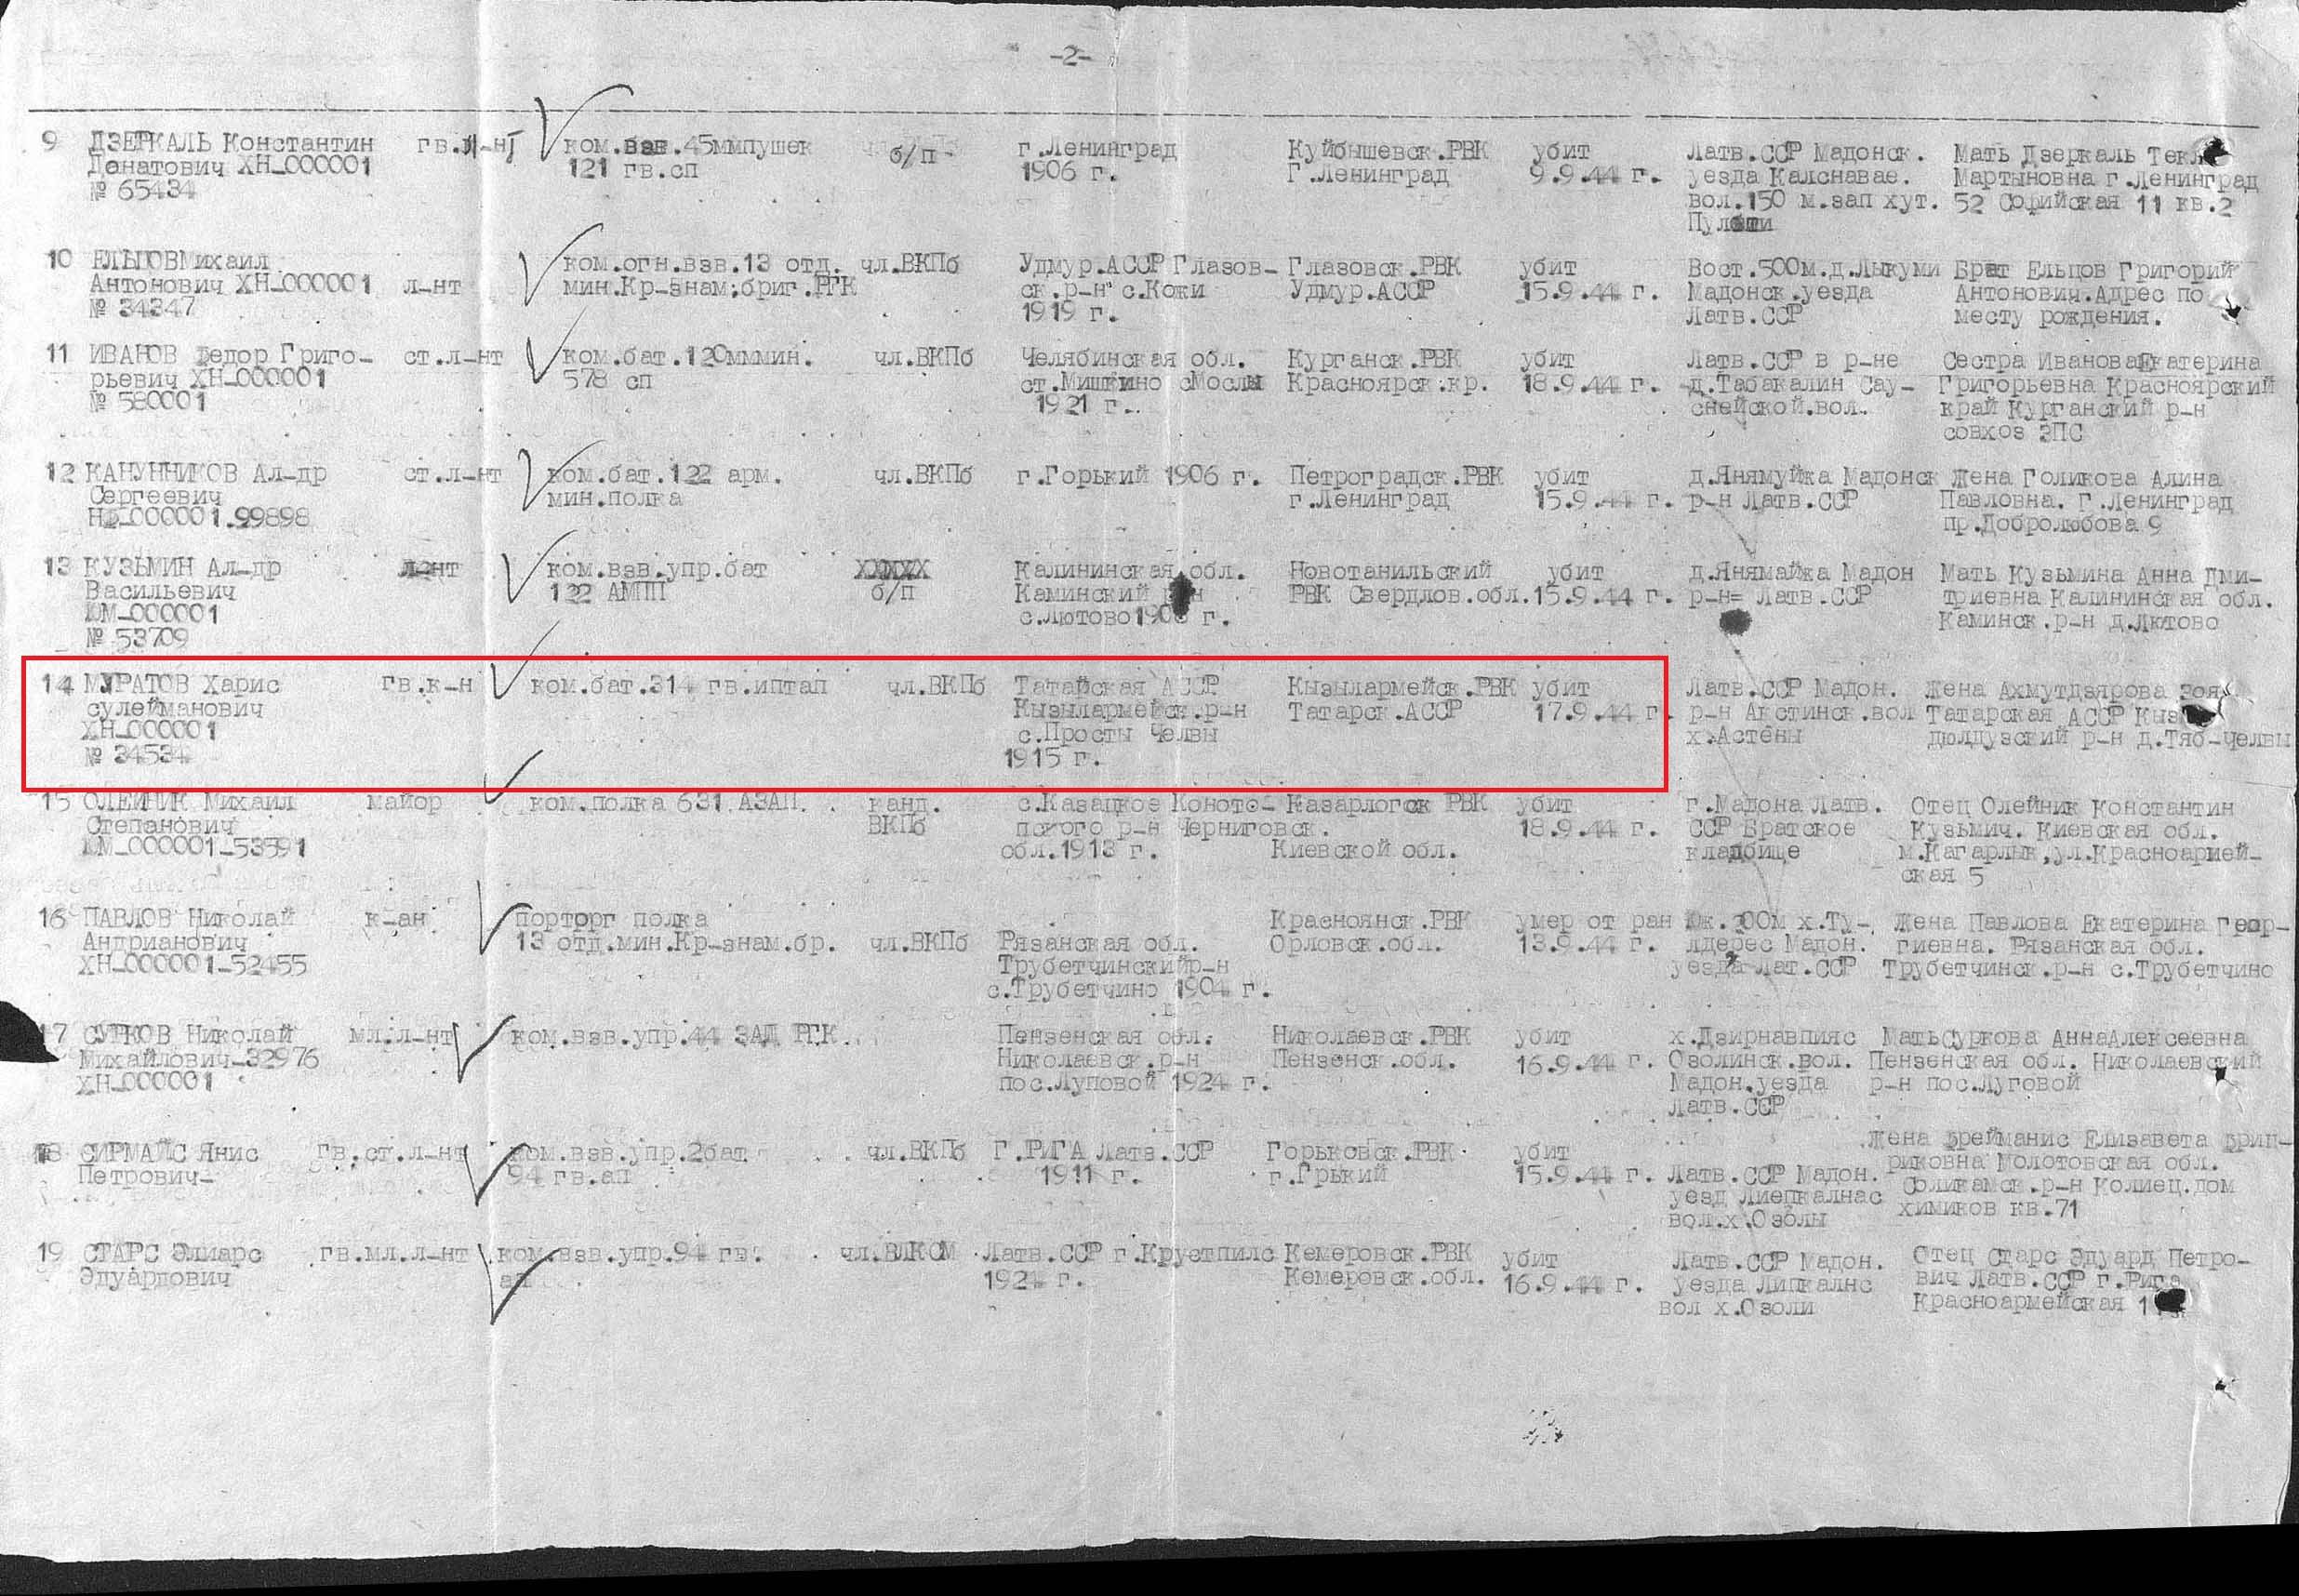 -2-
9 ДЗЕРКАЛЬ Константин гв.л-нт ком.взв.45ммпушек б/п - г.Ленинград Куйбышевск.РВК убит Латв.ССР Мадонск. Мать Дзеркаль Текл
Донатович ХН_000001 121 гв.сп 1906 г. Г.Ленинград 9.9.44 г. уезда Калснавае. Мартыновна г.Ленинград
№ 65434 вол.150 м.зап хут. 52 Софийская 11 кв.2
10 ЕЛЬЦОВМихаил ком.огн.взв.13 отд. чл.ВКПб Удмур.АССР Глазов- Глазовск.РВК убит Вост.500м.д.Лыкуми Брат Ельцов Григорий
Антонович ХН_000001 л-нт мин.Кр-знам.бриг.РГК ск.р-н с.Кожи Удмур.АССР 15.9.44 г. Мадонск.уезда Антонович.Адрес по
№ 34347 1919 г. Латв.ССР месту рождения.
11 ИВАНОВ Федор Григо- ст.л-нт ком.бат.120мммин. чл.ВКПб Челябинская обл. Курганск.РВК убит Латв.ССР в р-не Сестра ИвановаЕкатерина
рьевич ХН_000001 578 сп ст.Мишкино сМослы Красноярск.кр. 18.9.44 г. д.Табакалин Сау- Григорьевна Красноярский
№ 580001 1921 г. снейской.вол. край Курганский р-н
совхоз ЗПС
12 КАНУННИКОВ Ал-др ст.л-нт ком.бат.122 арм. чл.ВКПб г.Горький 1906 г. Петроградск.РВК убит д.Янямуйжа Мадонск Жена Голикова Алина
Сергеевич мин.полка г.Ленинград 15.9.44 г. р-н Латв.ССР Павловна. Г.Ленинград
000001.99898 пр.Добролюбова 9
13 КУЗЬМИН Ал-др л-нт ком.взв.упр.бат Калининская обл. Новотанильский убит д.Янямайжа Мадон Мать Кузьмина Анна Дми-
Васильевич 122 АМПП б/п Каминский РВК Свердлов.обл.15.9.44 г. р-н= Латв.ССР триевна Калининская обл.
ЮМ_000001 с.Лютово г. Каминск.р-н д.Лютово
№ 53709
14 МУРАТОВ Харис гв.к-н ком.бат.314 гв.иптап чл.ВКПб Татайская АССР Кызылармейск.РВК убит Латв.ССР Мадон. Жена Ахмутдзярова Зоя
сулейманович Кызылармейск.р-н Татарск.АССР 17.9.44 г. р-н Акстинск.вол Татарская АССР Кыз
ХН_000001 с.Просты Челвы х.Астены дюлдузский р-н д.Тяб-челвы
№ 34534 1915 г.
15 ОЛЕЙНИК Михаил майор ком.полка 631 АЗАП. канд. с.Казацкое Коното- Казарлогск РВК убит г.Мадона Латв. Отец Олейник Константин
Степанович ВКПб пского р-н Черниговск. 18.9.44 г. ССР Братское Кузьмич. Киевская обл.
ЮМ_000001_53591 обл.1913 г. Киевской обл. кладбище м.Кагарлык,ул.Красноармей-
ская 5
16 ПАВЛОВ Николай к-ан порторг полка Красноянск.РВК умер от ран Юж.200м х.Ту- Жена Павлова Екатерина Геор-
Андрианович 13 отд.мин.Кр-знам.бр. чл.ВКПб Рязанская обл. Орловск.обл. 13.9.44 г. лдерес Мадон. гиевна. Рязанская обл.
ХН_000001_52455 Трубетчинскийр-н уезда Лат.ССР Трубетчинск.р-н с.Трубетчино
с.Трубетчино 1904 г.
17 СУРКОВ Николай мл.л-нт ком.взв.упр.44 ЗАД РГК Пензенская обл. Николаевск.РВК убит х.Дзирнавпияс МатьСуркова АннаАлексеевна
Михайлович_32976 Николаевск.р-н Пензенск.обл. 16.9.44 г. Озолинск.вол. Пензенская обл. Николаевский
ХН_000001 пос.Луповой 1924 г. Мадон.уезда р-н пос.Луговой
Латв.ССР
18 СИРМАЙС Янис Гв.ст.л-нт ком.взв.упр.2бат чл.ВКПб Г.РИГА Латв.ССР Горьковск.РВК убит Жена Фрейманис Елизавета Фрид-
Петрович- 94 гв.ап 1911 г. г.Грький 15.9.44 г. Латв.ССР Мадон. риковна Молотовская обл.
уезд Лиепкалнас Соликамск.р-н Колиец.дом
вол.х.Озолы химиков кв.71
19 СТАРС Элиарс гв.мл.л-нт ком.взв.упр.94 гв. чл.ВЛКСМ Латв.ССР г.Крустпилс Кемеровск.РВК убит Латв.ССР Мадон. Отец Старс Эдуард Петро-
Эдуардович ап 1924 г. Кемеровск.обл. 16.9.44 г. уезда Липкалнс вич Латв.ССР г.Рига
вол х.Озоли Красноармейская